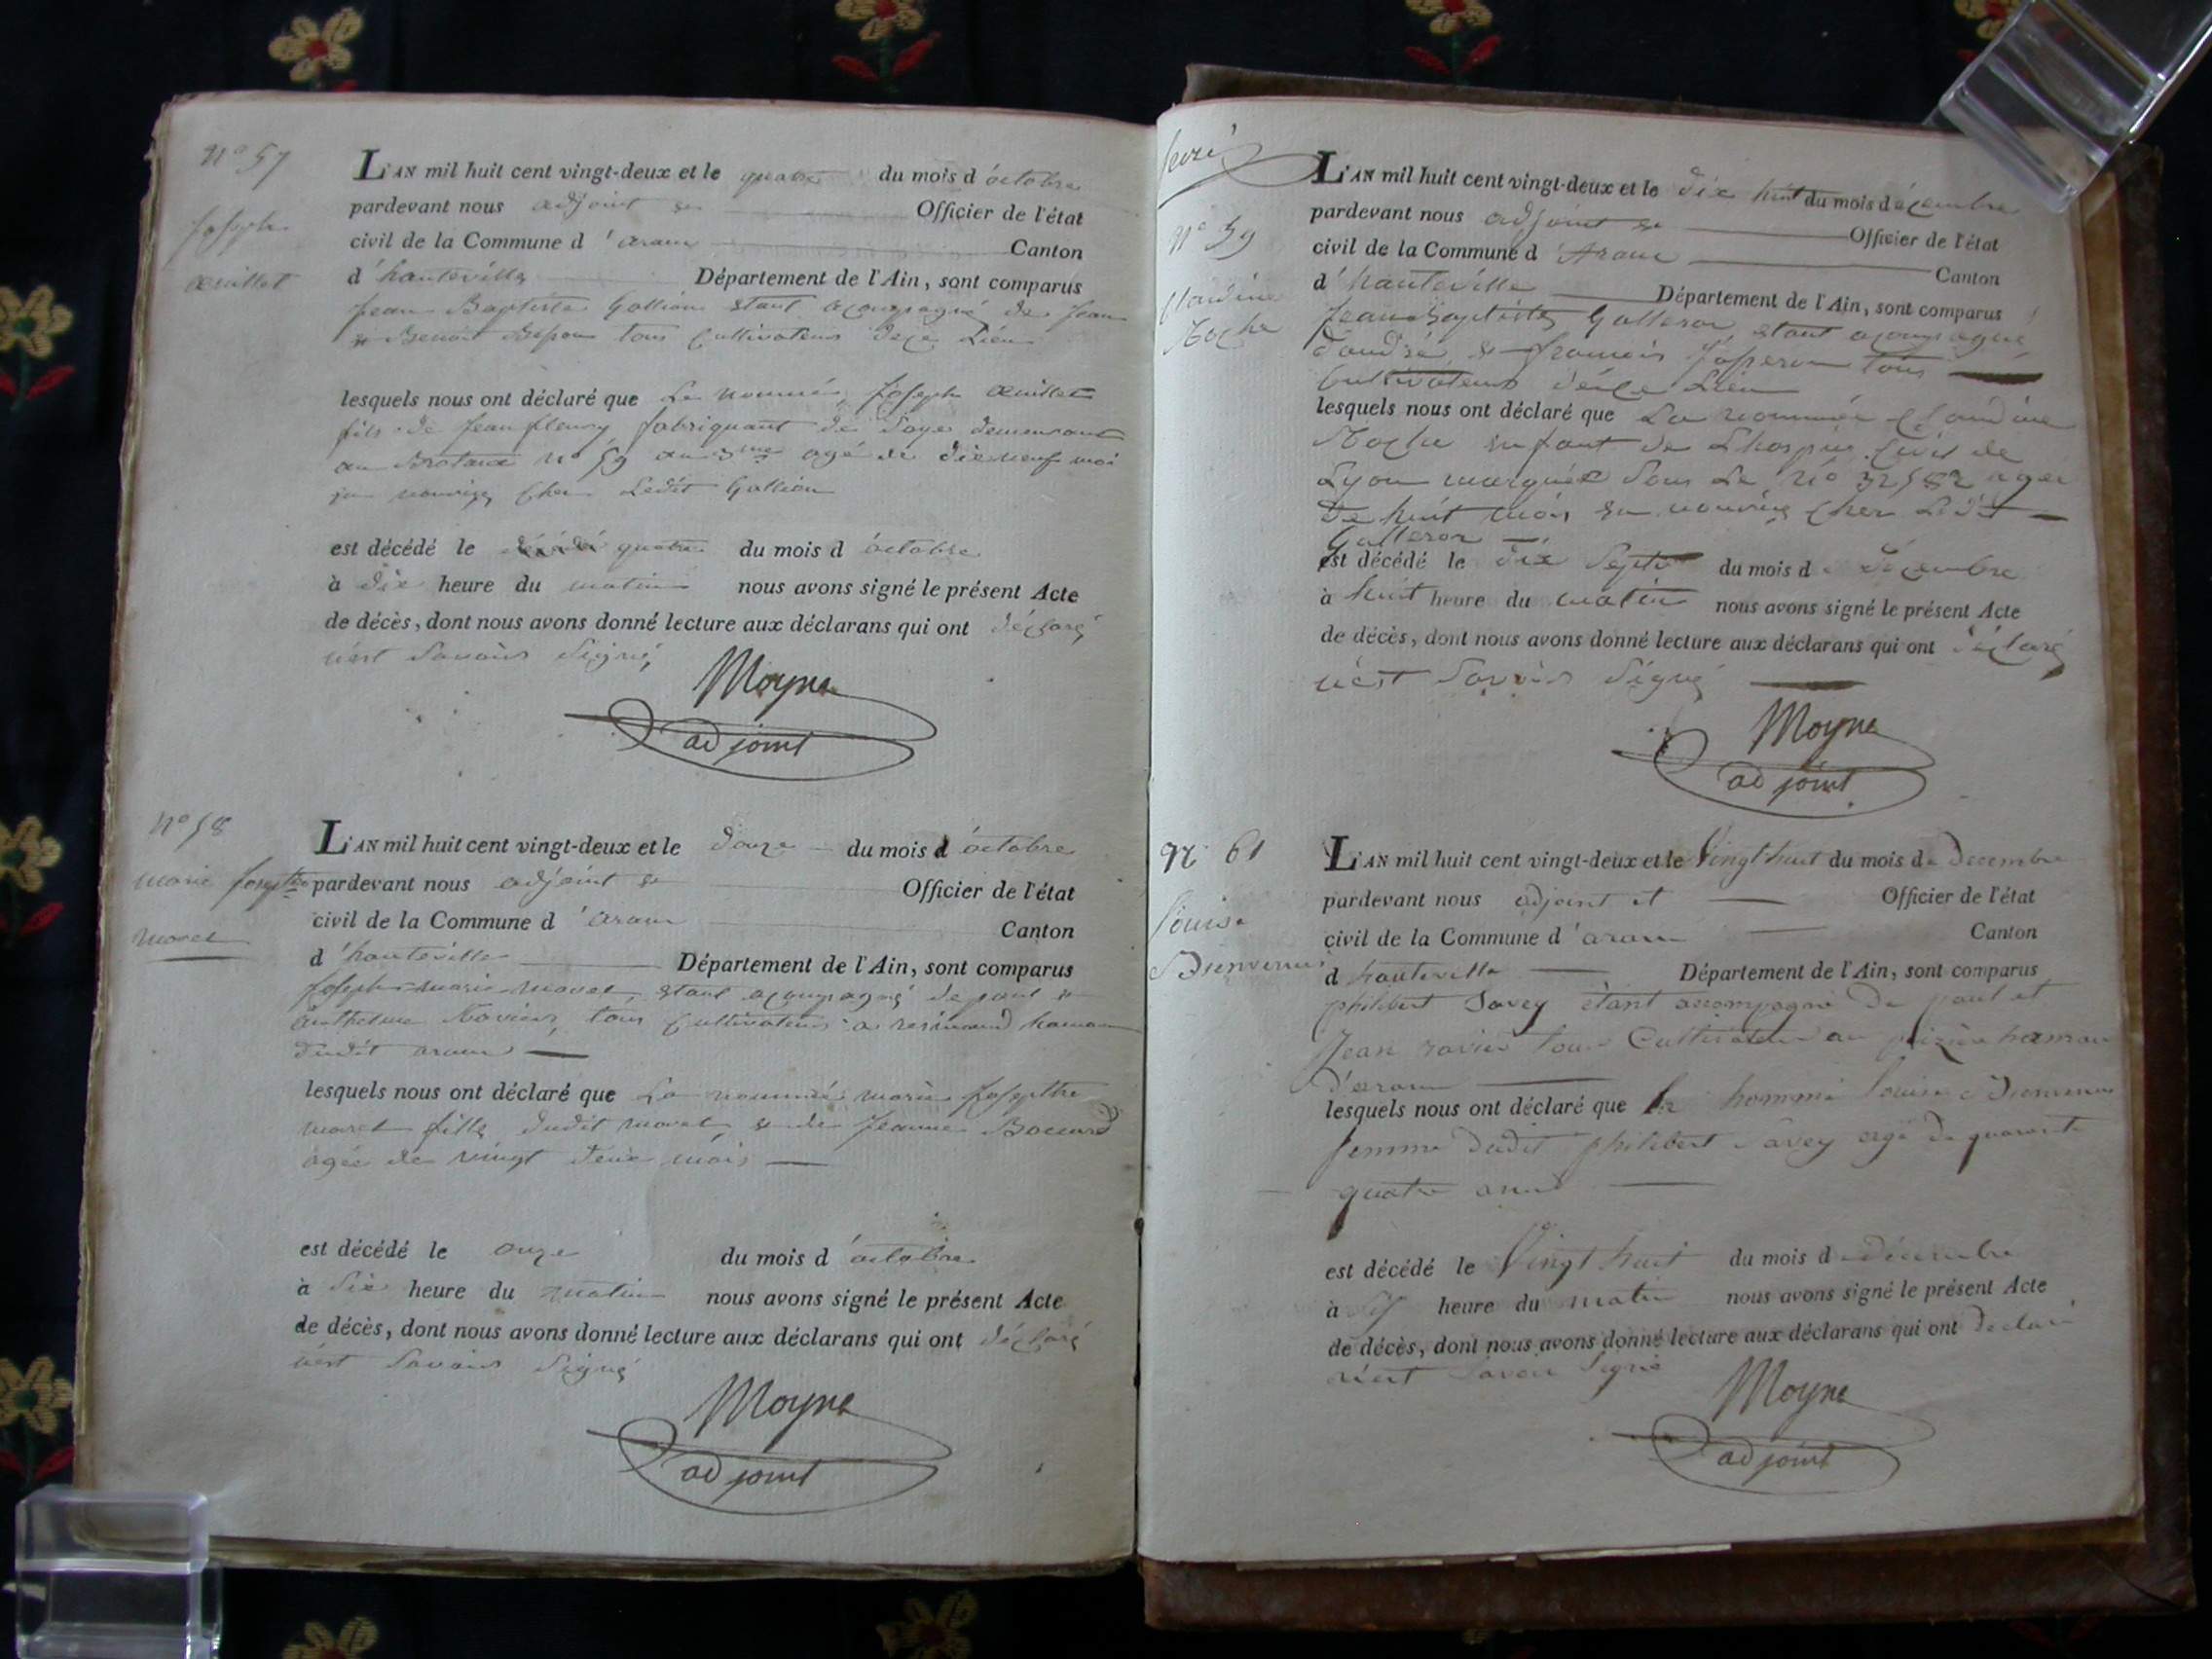 N° 57
Joseph
œuillet
L'AN mil huit cent vingt-deux et le quatre du mois d'octobre
pardevant nous adjoint et Officier de l'état
civil de la Commune d'aranc Canton
d'hauteville Département de l'Ain, sont comparus
Jean Baptiste Gallion etant acompagné de Jean
et Benoit tous Cultivateurs de ce Lieu
lesquels nous ont déclaré que Le nommé Joseph œuillet
fils de Jean fleury fabriquant de Soye demeurant
au n° 59 au 3me agé de dixneuf moi
en nourice Cher Ledit Gallion
est décédé le quatre du mois d'octobre
à dix heure du matin nous avons signé le présent Acte
de décès, dont nous avons donné lecture aux déclarans qui ont déclaré
n'est Savoir Signé
Moyne
adjoint
N° 58
marie Josepthe
moret
L'AN mil huit cent vingt-deux et le douze du mois d'octobre
pardevant nous adjoint et Officier de l'état
civil de la Commune d'aranc Canton
d'hauteville Département de l'Ain, sont comparus
Joseph marie moret, etant acompagné de paul et
anthelme Ravier, tous Cultivateurs a resinand hamau
dudit aranc
lesquels nous ont déclaré que La nommée marie Josepthe
moret fille dudit moret et de Jeanne
agée de vingt deux mois
est décédé le onze du mois d'octobre
à dix heure du matin nous avons signé le présent Acte
de décès, dont nous avons donné lecture aux déclarans qui ont déclaré
n'est Savoir Signé
Moyne
adjoint
N° 59
Claudine
Roche
L'AN mil huit cent vingt-deux et le dix huit du mois décembre
pardevant nous adjoint et Officier de l'état
civil de la Commune d'Aranc Canton
d'hauteville Département de l'Ain, sont comparus
Jean Baptiste etant acompagné
d'andré et francois tous
Cultivateurs de ce Lieu
lesquels nous ont déclaré que La nommée Claudine
Roche enfant de Lhospice Civil de
Lyon marquée Sous Le N° agée
de huit mois en nourice Cher Ledit
est décédé le dix Sept du mois d décembre
à huit heure du matin nous avons signé le présent Acte
de décès, dont nous avons donné lecture aux déclarans qui ont déclaré
n'est Savoir Signé
Moyne
adjoint
N° 61
Louise
L'AN mil huit cent vingt-deux et le Vingt huit du mois de Decembre
pardevant nous adjoint et Officier de l'état
civil de la Commune d'aranc Canton
d hauteville Département de l'Ain, sont comparus
philibert Savey étant accompagné de paul et
Jean ravier tous Cultivateur au hamau
d'aranc
lesquels nous ont déclaré que la nommé Louise
femme dudit philibert Savey agé de quarante
quatre anné
est décédé le Vingt huit du mois d décembre
à heure du matin nous avons signé le présent Acte
de décès, dont nous avons donné lecture aux déclarans qui ont declaré
n'est Savoir Signé
Moyne
adjoint